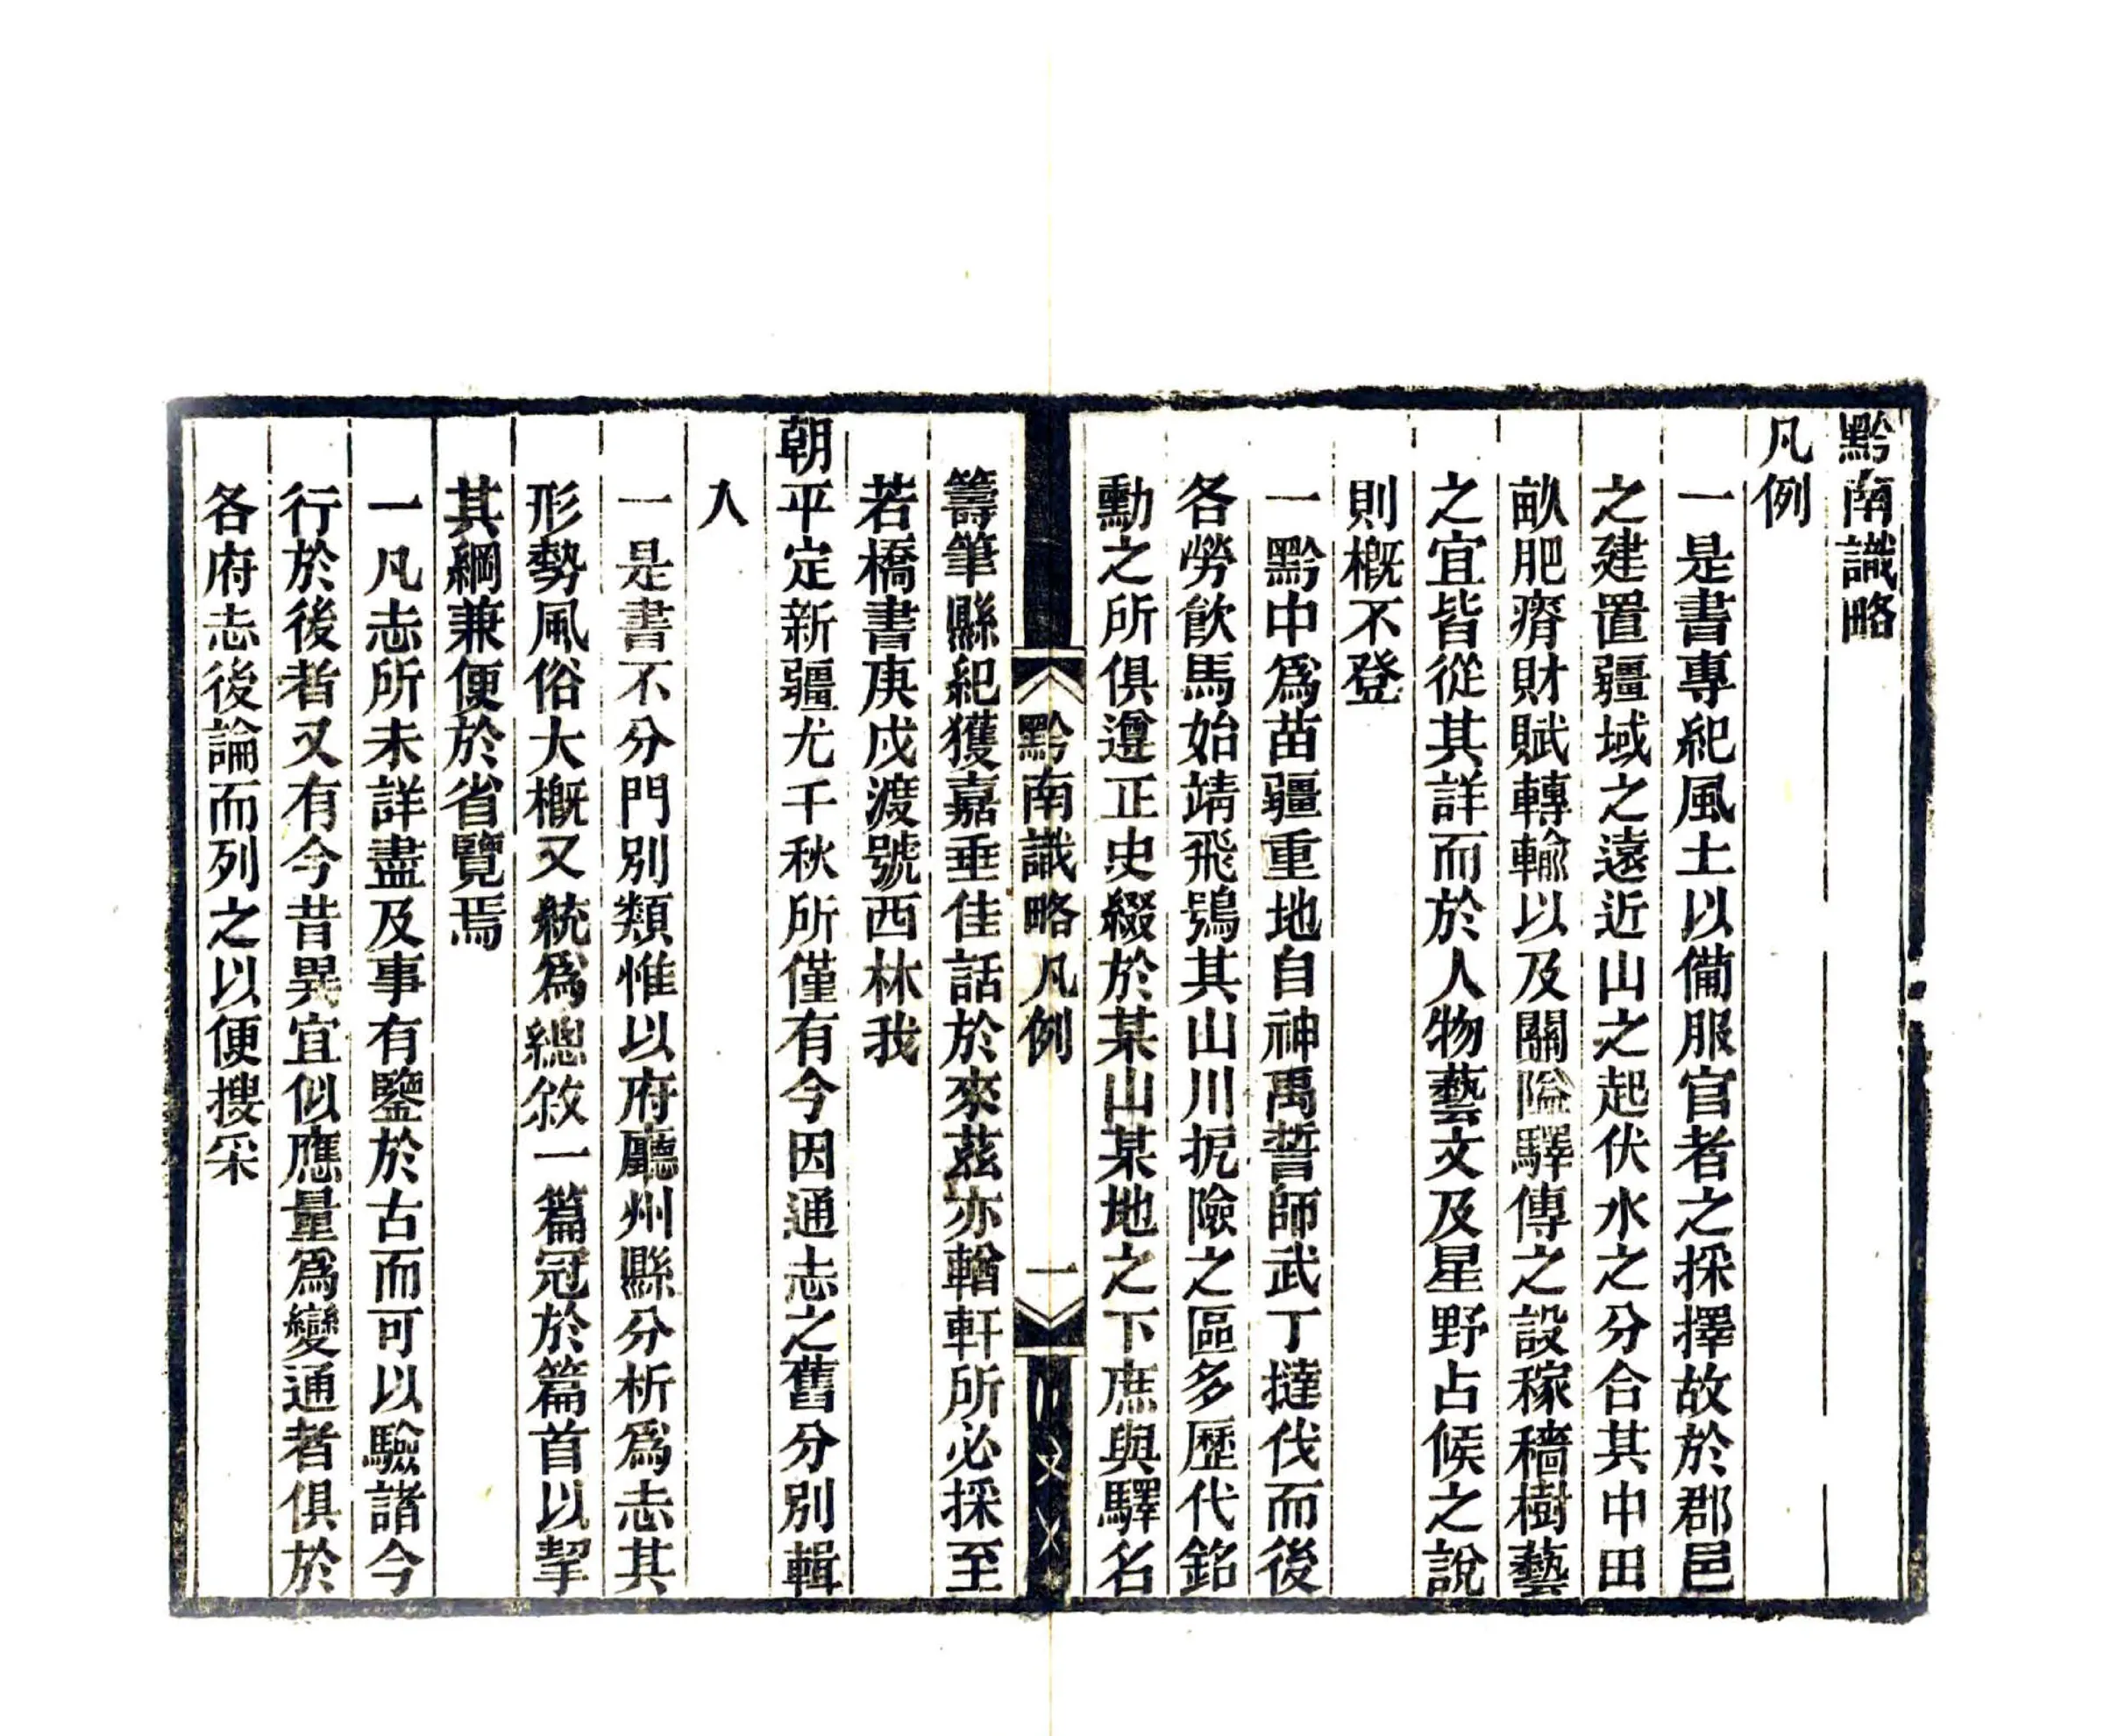 黔南識略
凡例
一是書專紀風土以備服官者之採擇故於郡邑
之建置疆域之遠近山之起伏水之分合其中田
畝肥瘠財賦轉輸以及關隘驛傳之設稼穡樹藝
之宜皆從其詳而於人物藝文及星野占候之說
則概不登
一黔中爲苗疆重地自神禹誓師武丁撻伐而後
各勞飲馬始靖飛鴞其山川扼險之區多歷代銘
勳之所俱遵正史綴於某山某地之下庶與驛名
黔南識略凡例
一
籌筆縣紀獲嘉垂佳話於來茲亦輶軒所必採至
若橋書庚戍渡號西林我
朝平定新疆尤千秋所僅有今因通志之舊分別輯
入
一是書不分門別類惟以府廳州縣分析爲志其
形勢風俗大概又統爲總敘一篇冠於篇首以挈
其綱兼便於省覽焉
一凡志所未詳盡及事有鑒於古而可以驗諸今
行於後者又有今昔異宜似應量爲變通者俱於
各府志後論而列之以便搜采